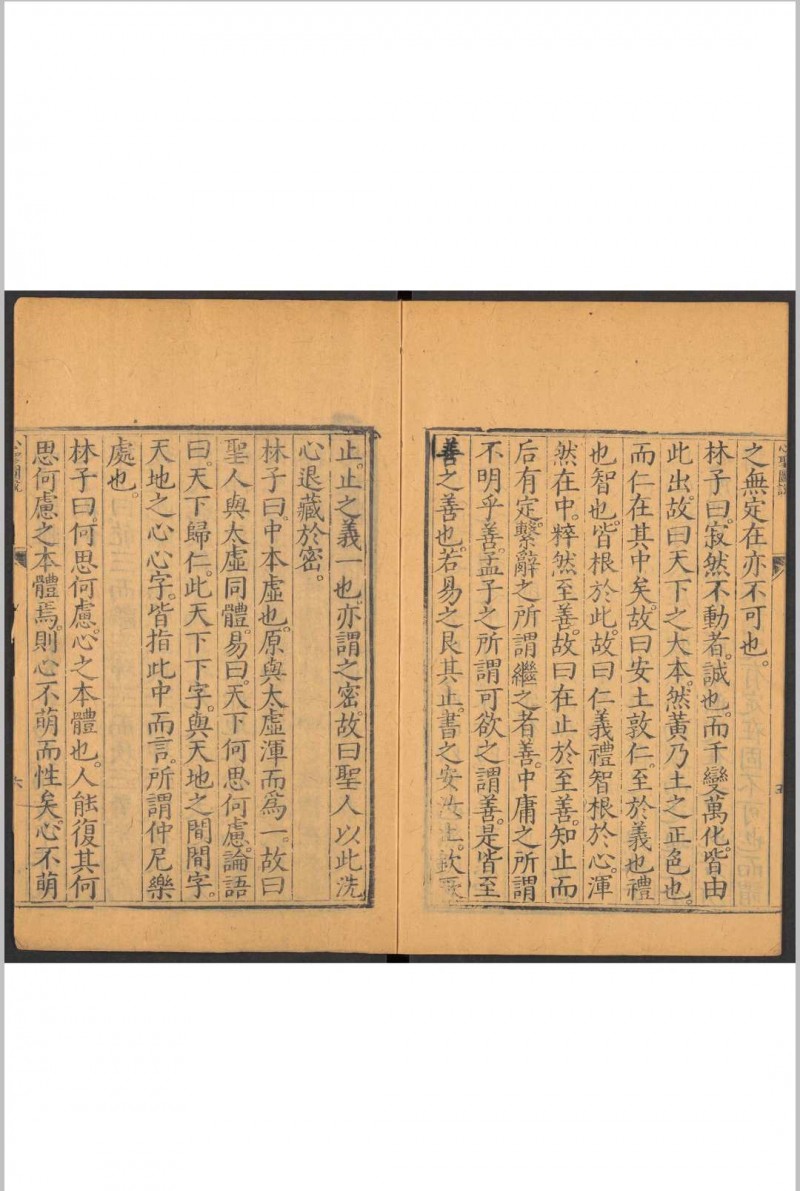 之無定在亦不可也。
林子曰。寂然不動者。誠也。而千變萬化。皆由
此出。故曰天下之大本。然黃乃土之正色也。
而仁在其中矣。故曰安土敦仁。至於義也禮
也智也。皆根於此。故曰仁義禮智根於心。渾
然在中。粹然至善。故曰在止於至善。知止而
后有定。繫辭之所謂繼之者善。中庸之所謂
不明乎善。孟子之所謂可欲之謂善。是皆至
善之善也。若易之艮其止。書之安汝止。欽厥
五
止。止之義一也。亦謂之密。故曰聖人以此洗
心退藏於密。
林子曰。中本虛也。原與太虛渾而為一。故曰
聖人與太虛同體。易曰。天下何思何慮。論語
曰。天下歸仁。此天下下字。與天地之間間字。
天地之心心字。皆指此中而言。所謂仲尼樂
處也。
林子曰。何思何慮。心之本體也。人能復其何
思何慮之本體焉。則心不萌而性矣。心不萌
心聖圖說
六